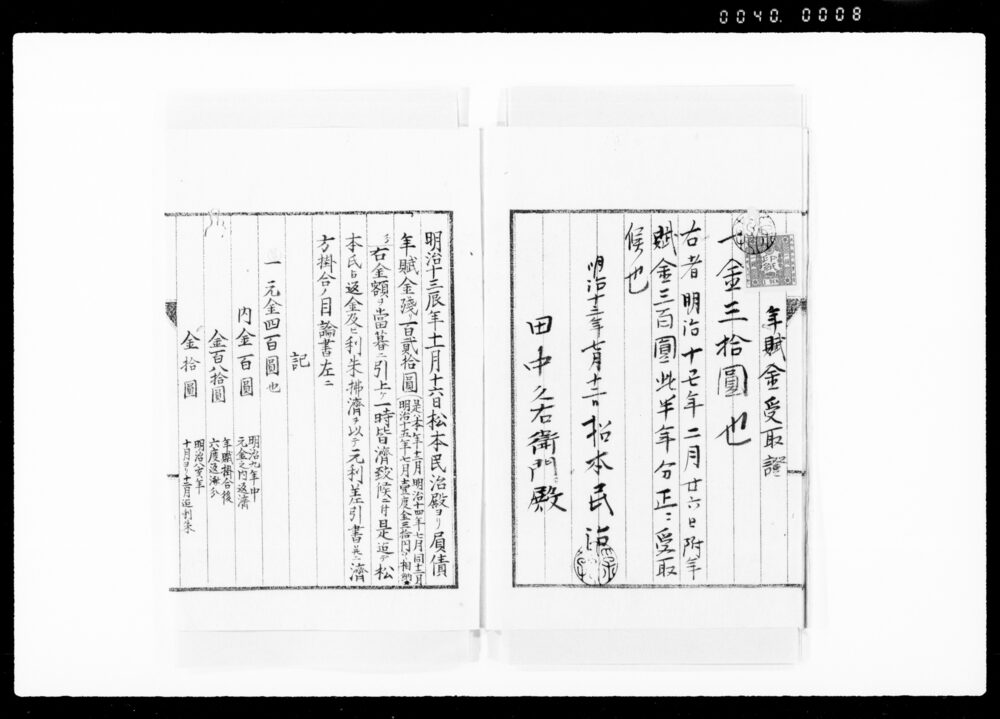 0040. 0008
年賦金受取證
一金三拾圓也
右者明治十七年二月廿六日附年
賦金三百圓此半年分正ニ受取
候也
明治十三年七月十二日 松本民治
田中久右衛門殿
明治十三辰年十一月十六日松本民治殿ヨリ負債
年賦金殘リ百貳拾圓
是ハ本年十二月明治十四年七月同十二月
明治十五年七月壹度金三拾円ツヽ相納ル
右金額ヲ當暮ニ引上ケ一時皆濟致候ニ付是迄ノ松
本氏ヨリ返金及ヒ利朱拂濟ヲ以テ元利差引書并ニ濟
方掛合ノ目論書左ニ
記
一元金四百圓也
内金百圓 明治九年中
元金之内返濟
金百八拾圓 年賦掛合後
六度返濟分
金拾圓 明治八亥年
十月ヨリ十二月迄利朱